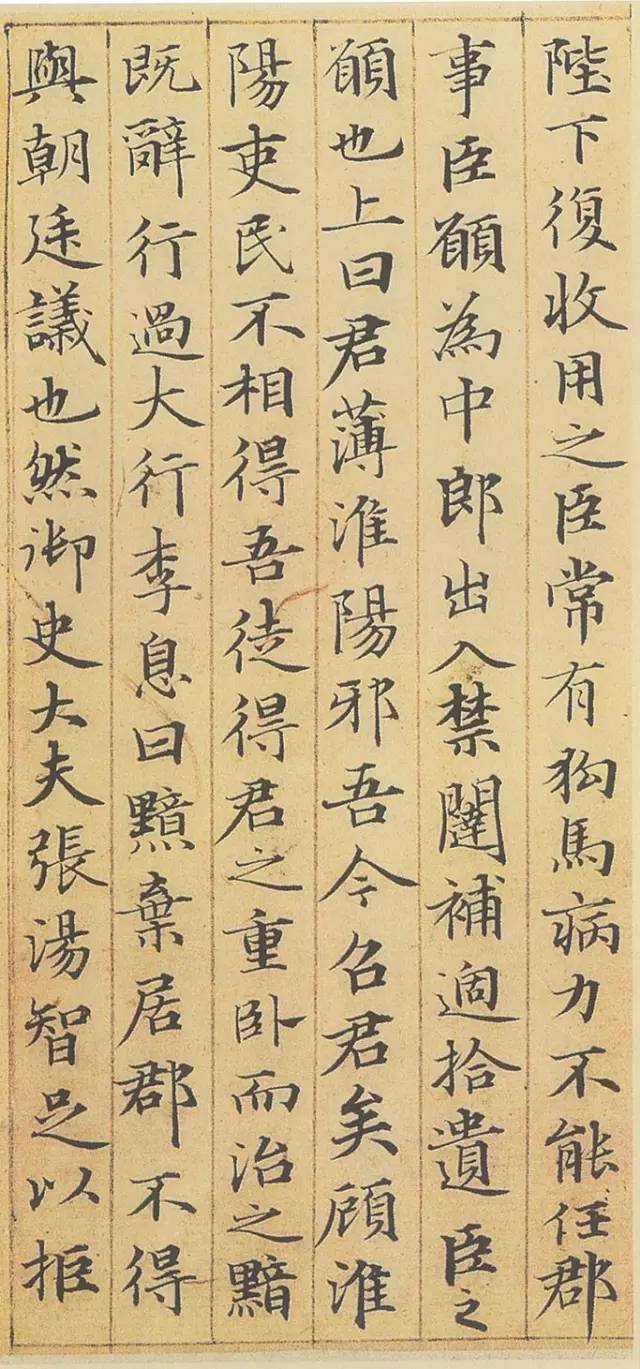 陛下復收用之臣常有狗馬病力不能任郡
事臣願為中郎出入禁闥補過拾遺臣之
願也上曰君薄淮陽邪吾今召君矣顧淮
陽吏民不相得吾徒得君之重臥而治之黯
既辭行過大行李息曰黯棄居郡不得
與朝廷議也然御史大夫張湯智足以拒